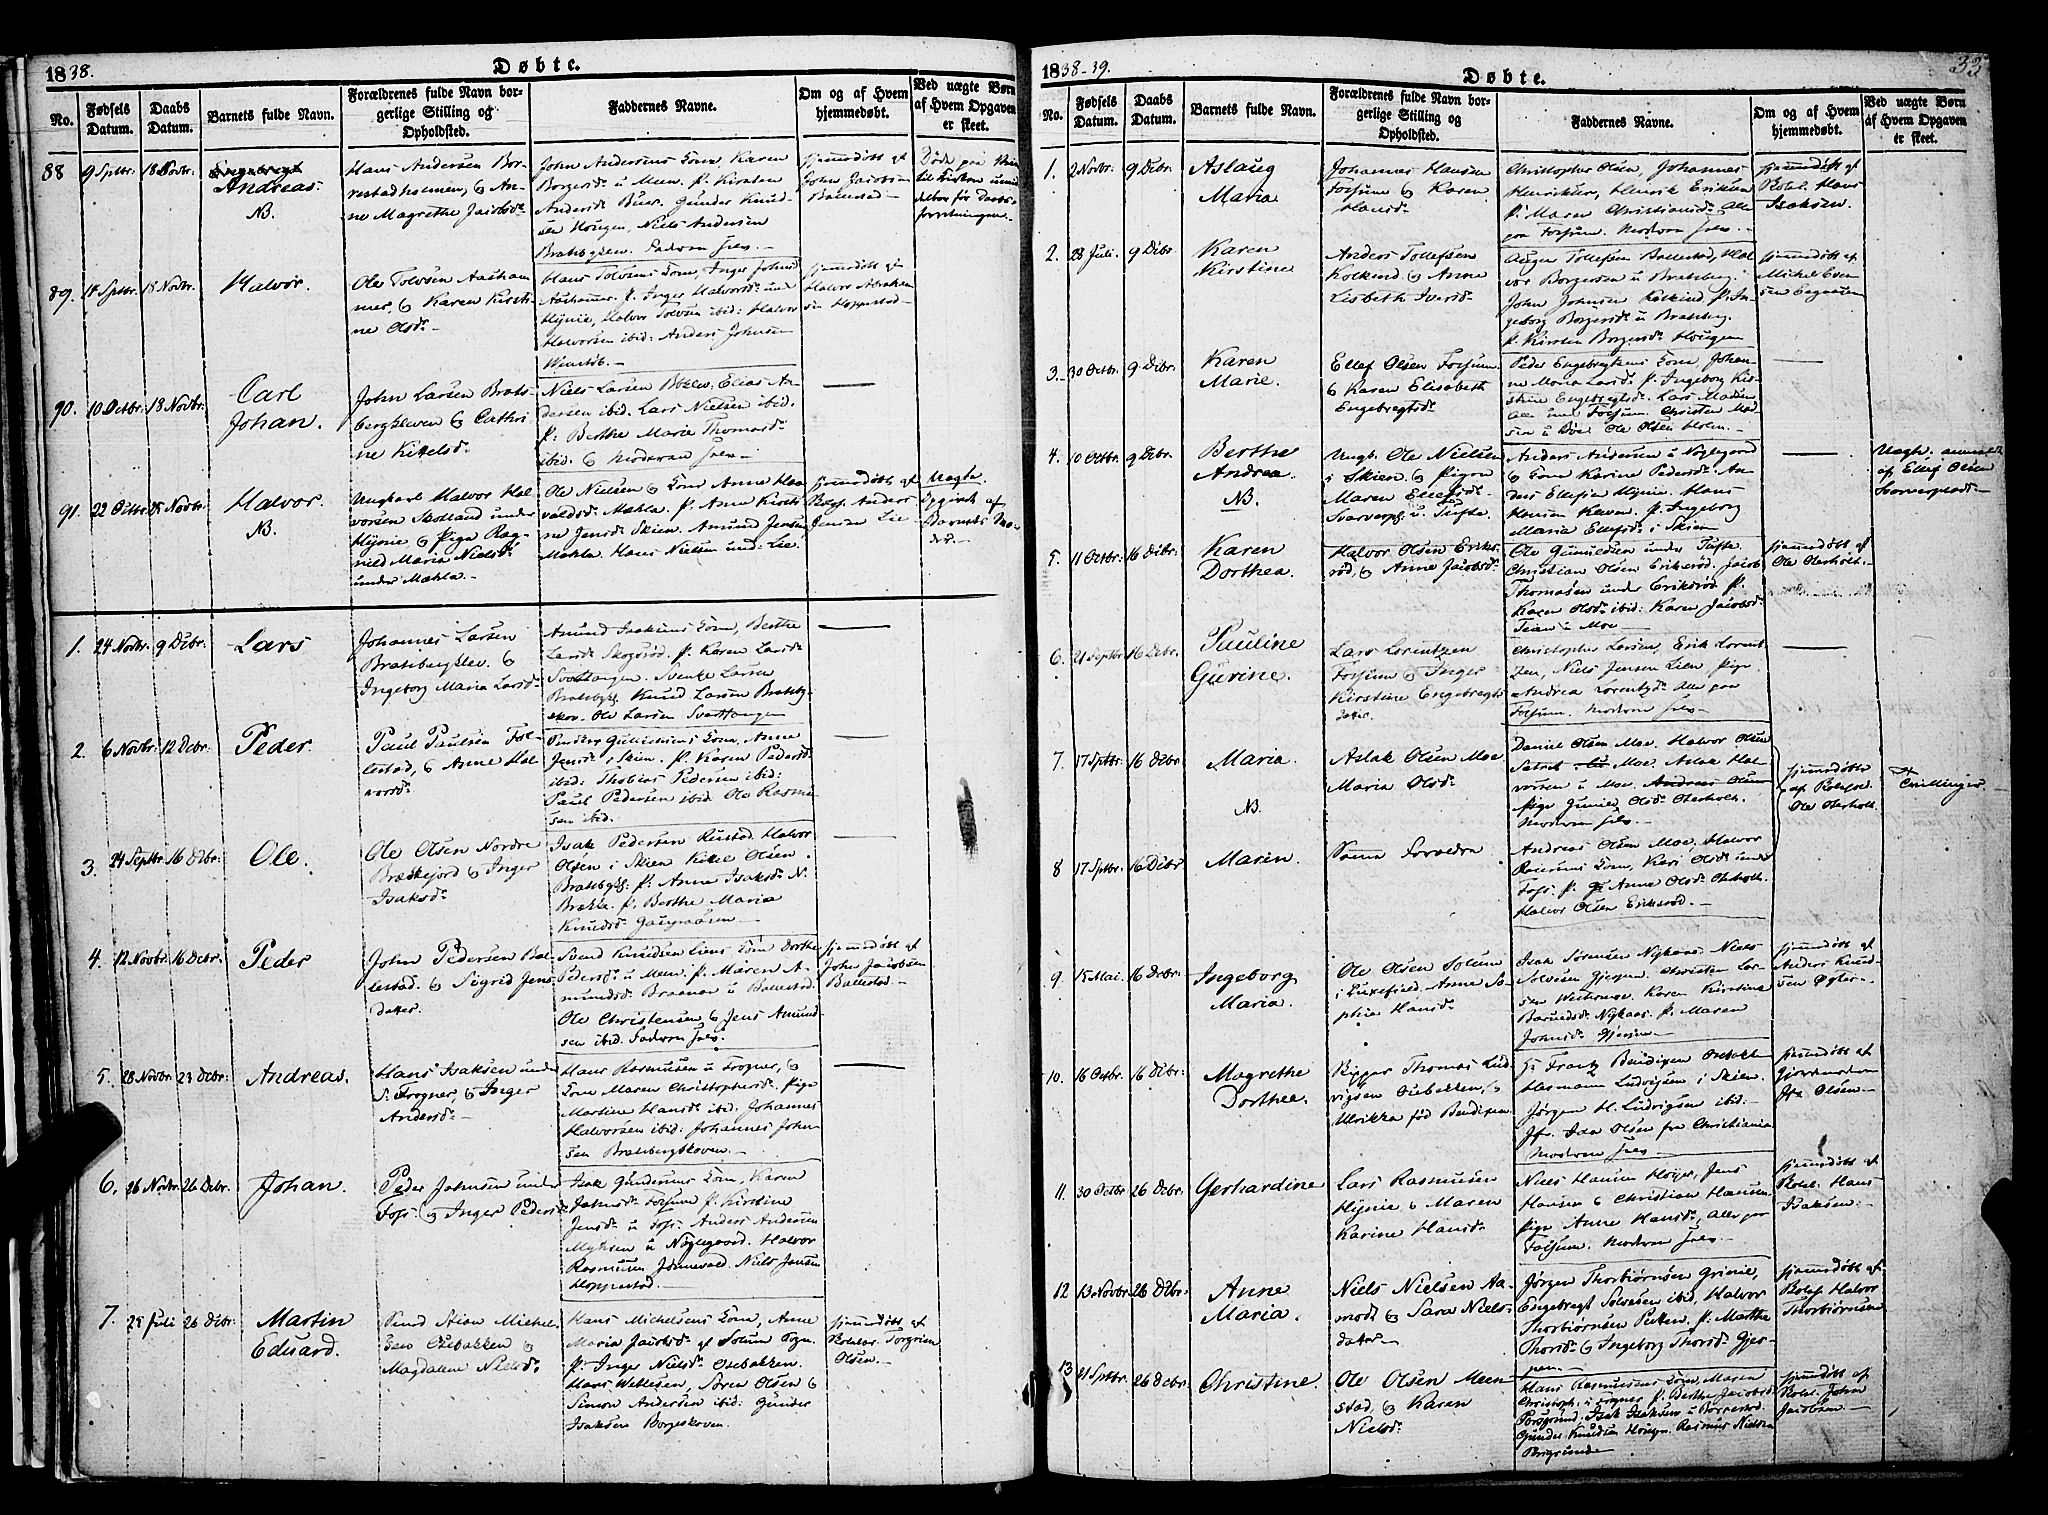 1838.
Døbte.
No.
Fødsels Datum.
Daabs Datum.
Barnets fulde Navn.
Forældrenes fulde Navn bor-
gerlige Stilling og
Opholdsted.
Faddernes Navne.
Om og af Hvem
hjemmedøbt.
Ved uægte Børn
af Hvem Opgaven
er skeet.
88
9 Septbr.
18 Novbr.
Andreas.
NB.
Hans Andersen Bor-
restadholmen, & An-
ne Magrethe Jacobsd.
John Andersens Kone, Karen
Andersd. Buer. Gunder Knud-
sen Hougen, Niels Andersen
Bratsbgkleven. Faderen selv.
hjemmedøbt af
John Jacobsen
Ballestad
89.
18 Novbr.
Halvor.
Ole Tolvsen Aasham-
mer, & Karen Kirsti-
ne Olsd.
Hans Tolvsens Kone, Inger Johnsd.
Aashammer. P. Inger Halvorsd. und.
Hynie, Halvor Tolvsen ibid: Halvor
Halvorsen ibid: Anders Johnsen
hjemmedøbt af
Halvor Abraham-
sen Hoppestad
90.
10 Octbr.
18 Novbr.
Carl
Johan.
John Larsen Brats-
bergkleven & Cathri-
ne Kittelsd.
Niels Larsen Bbklev: Elias An-
dersen ibid. Lars Nielsen ibid.
P: Berthe Maria Thomasd.
ibid. & Moderen selv.
91.
22 Octbr.
25 Novbr.
Halvor.
NB.
Ungkarl Halvor Hal-
vorsen Skotland under
Hynie & Pige Rag-
nild Maria Nielsd.
under Mæhla.
Ole Nielsen & Kone Anne Haa-
valdsd. Mæhla. P. Anne Kirsti-
ne Jensd. Skien. Amund Jensen
Mæhla. Hans Nielsen und: Lie.
hjemmedøbt af
Anders
Jensen Lie
Uægte
Opgivet af
Barnets Mo-
der.
1.
24 Novbr.
9 Decbr:
Lars
Johannes Larsen
Bratsbergklev. &
Ingeborg Maria Larsd.
Amund Isaksens Kone, Berthe
Larsd. Skogsrød. P. Karen Larsd.
Svartangen. Svenke Larsen
Bratsbgkl. Knud Larsen Bratsbg-
skov. Ole Larsen Svartangen
2.
6 Novbr:
12 Decbr.
Peder.
Paul Paulsen Fol-
lestad, & Anne Hal-
vorsd.
Jensd. i Skien. P. Karen Pedersd.
ibid: Thobias Pedersen ibid:
Paul Pedersen ibid. Ole Rasmu-
sen ibid.
3.
24 Septbr.
16 Decbr.
Ole.
Ole Olsen Nordre
Brækkejord & Inger
Isaksd.
Isak Pedersen Rustad. Halvor
Olsen i Skien. Kittel Olsen
Bratsbgkl: P: Anne Isaksd. N.
Brække. P. Berthe Maria
Knudsd.
4.
12 Novbr.
16 Decbr.
Peder
John Pedersen Bal-
lestad. & Sigrid Jens-
datter.
Svend Knudsen Liens Kone Dorthe
Pedersd. P. Maren A-
mundsd. Braanar u Ballestad.
Ole Christensen & Jens Amund-
sen ibid. Faderen selv.
hjemmedøbt af
John Jacobsen
Ballestad
5.
28 Novbr.
23 Decbr:
Andreas.
Hans Isaksen under
S: Frogner, & Inger
Andersd.
Hans Rasmusen u Frogner, &
Kone Maren Christophersd. Pige
Martine Hansd. ibid. Johannes
Halvorsen ibid: Johannes John-
sen Bratsbergkleven.
6.
26 Novbr.
26 Decbr.
Johan.
Peder Johnsen under
Fos: & Inger Pedersd.
Isak Gundersens Kone, Karen
Johnsd. Fossum P. Kirstine
Jensd. u Fos: Anders Andersen
u Nøglegaard. Halvor
Rasmusen Jønnevald. Niels Jensen
Hoppestad.
7.
28 Juli
26 Decbr:
Martin
Eduard.
Stian Michel-
sen Osebakken &
Magdalene Nielsd:
Hans Michelsens Kone, Anne
Maria Jacobsd. af Solum Sogn.
P: Inger Nielsd. Osebakken.
Hans Wetlesen, Søren Olsen &
Simon Andersen ibid: Gunder
Isaksen Borgeskoven.
hjemmedøbt af
Torgrim
Olsen.
1838-39.
Døbte.
33
No.
Fødsels Datum.
Daabs Datum.
Barnets fulde Navn.
Forældrenes fulde Navn bor-
gerlige Stilling og
Opholdsted.
Faddernes Navne.
Om og af Hvem
hjemmedøbt.
Ved uægte Børn
af Hvem Opgaven
er skeet.
1.
2 Novbr.
9 Decbr.
Aslaug
Maria
Johannes Hansen
Fossum & Karen
Hansd.
Christopher Olsen, Johannes
Henriksen, Henrik Eriksen
P: Maren Christiansd. Alle
paa Fossum. Moderen selv.
hjemmedøbt af
Hans
Isaksen.
2.
28 Juli.
9 Decbr
Karen
Kirstine
Anders Tollefsen
Kolkind & Anne
Lisbeth Iversd.
Auger Tollefsen Ballestad, Hal-
vor Borgersen u Bratsberg.
John Johnsen Kolkind P: In-
geborg Borgersd. u Bratsberg.
P. Kirsten Borgersd. Hougen
hjemmedøbt af
Michel Even-
sen
3.
30 Octbr.
9 Decbr.
Karen
Marie.
Ellef Olsen Fossum.
& Karen Elisabeth
Engebregtsd.
Peder Engebregtsens Kone, Johan-
ne Maria Larsd. P. Ingeborg Kir-
stine Engebregtsd. Lars Madsen
Alle und Fossum. Christen Mad-
sen u Bøe. Ole Olsen Holm.
4.
10 Octbr.
9 Decbr.
Berthe
Andrea.
NB.
Ungk. Ole Nielsen
i Skien & Pigen
Maren Ellefsd.
Svarverpl: u. Tufte.
Anders Andersen u Nøglegaard
& Kone Karine Pedersd. An-
ders Ellefsen Hynie. Hans
Hansen Kleven. P. Ingeborg
Maria Ellefsd. i Skien
Uægte. anmeldt
af Ellef Olsen
Svarverplads
5.
11 Octbr.
16 Decbr:
Karen
Dorthea.
Halvor Olsen Eriks-
rød, & Anne Jacobsd.
Ole Gunildsen under Tufte.
Christian Olsen Eriksrød. Jacob
Thomasen under Eriksrød P.
Karen Olsd. ibid: Karen Jacobsd.
Teien u Moe
hjemmedøbt af
Ole Oterholt.
6.
21 Septbr.
16 Decbr.
Pauline
Gurine.
Lars Lorentzen
Fossum & Inger
Kirstine Engebregts-
datter.
Christopher Larsen, Erik Lorent-
zen, Niels Jensen Lien Pige
Andrea Lorentzd. Alle paa
Fossum. Moderen selv
7.
17 Septbr.
16 Decbr
Maria.
NB.
Aslak Olsen Moe
Maria Olsd.
Daniel Olsen Moe. Halvor Olsen
Moe. Aslak Hal-
vorsen u Moe. Andreas Olsen
Pige Gunild Olsd. Oterholt.
Moderen selv
hjemmedøbte
af
Ole Oterholt.
Tvillinger.
8
17 Septbr.
16 Decbr
Maren.
Samme Forældre
Andreas Olsen Moe, Halvor
Kone, Kari Olsd. under
Fos: P. Anne Olsd. Oterholt.
Halvor Olsen Eriksrød.
9
15 Mai.
16 Decbr.
Ingeborg
Maria.
Ole Olsen Solum
i Luxefjeld. Anne So-
phia Hansd.
Isak Sørensen Nykaas. Niels
Solvesen Gjerpen. Christen Lar-
sen Westrene. Karen Kirstine
Nykaas. P. Maren
Johnsd. Gjerpen
hjemmedøbt af
Anders Knud-
sen
10.
16 Octbr.
16 Decbr:
Magrethe
Dorthea.
Rigger Thomas Lud-
vigsen Osebakken, &
Ulrikka fød Bendixen.
Hr Frantz Bendixen Osebakk.
Hermann Ludvigsen i Skien.
Jørgen H. Ludvigsen ibid:
Jfr. Ida Olsen fra Christiania
Moderen selv
hjemmedøbt af
Gjordemoder
Olsen.
11.
30 Octbr
26 Decbr.
Gerhardine
Lars Rasmusen
Hynie & Maren
Karine Hansd.
Niels Hansen Hoyer, Jens
Hansen & Christian Hansen,
Pige Anne Hansd. Alle paa
Fossum. Moderen selv
hjemmedøbt af
Hans
Isaksen.
12
13 Novbr.
26 Decbr.
Anne
Maria.
Niels Nielsen Aa-
modt & Sara Niels-
datter
Jørgen Thorbiørnsen Grinie,
Engebregt Solvesen ibid, Halvor
Thorbiørnsen P. Marthe
Thorsd. & Ingeborg Thorsd. Gjer-
pen.
hjemmedøbt af
Halvor
Thorbiørnsen
13
21 Septbr.
26 Decbr.
Christine.
Ole Olsen Meen-
stad, & Karen
Nielsd.
Hans Rasmusens Kone, Maren
Christoph: u Frogner P. Berthe Jacobsd.
Porsgrund. Isak Isaksen u Borrestad
Gunder Knudsen Hougen. Rasmus Nielsen
hjemmedøbt af
John
Jacobsen